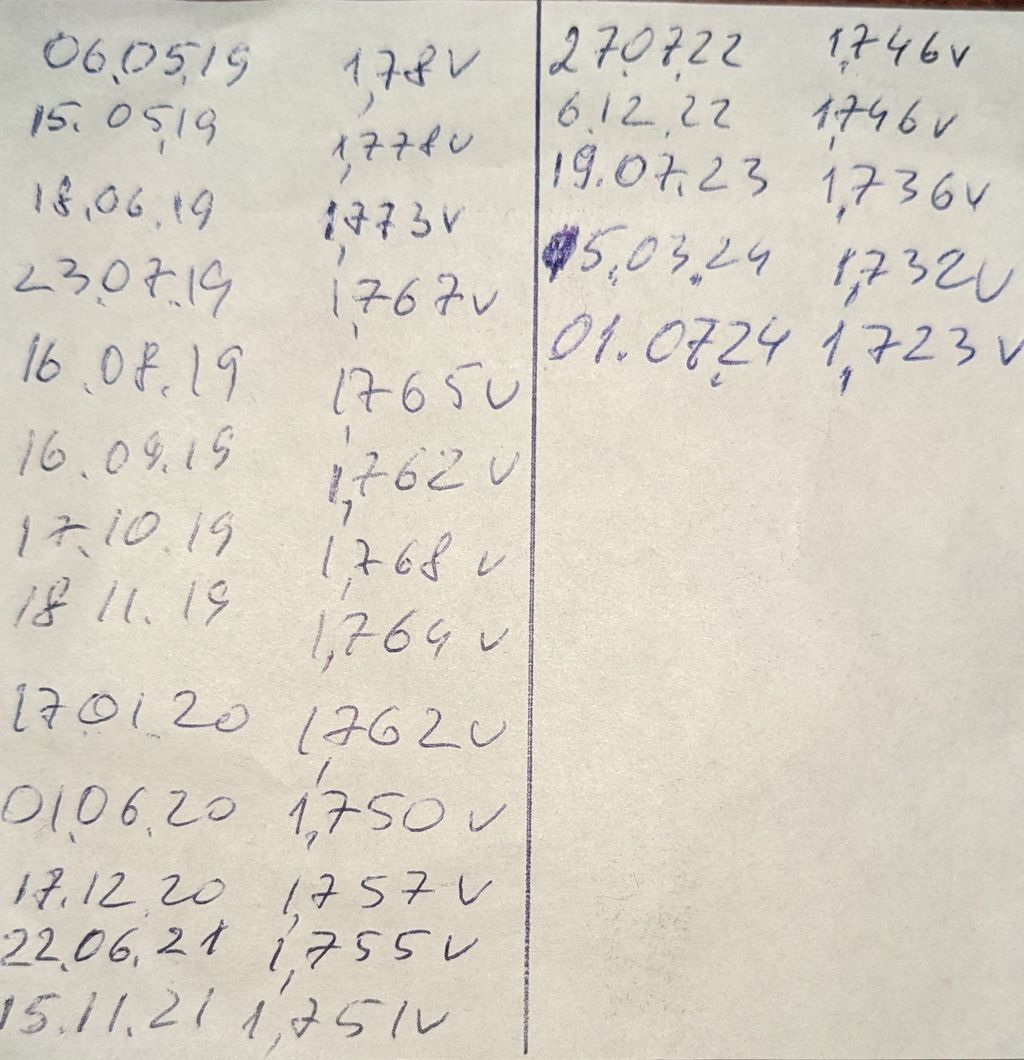 06.05.19 1,78V
15.05,19 1,778V
18.06.19 1,773V
23.07.19 1,767V
16.08.19 1,765V
16.09.19 1,762V
17.10.19 1,768V
18 11.19 1,764V
17.01.20 1,762V
01.06.20 1,750V
17.12.20 1,757V
22.06.21 1,755V
15.11.21 1,751V
27.07.22 1,746V
6.12.22 1,746V
19.07.23 1,736V
15.03.24 1,732V
01.07.24 1,723V